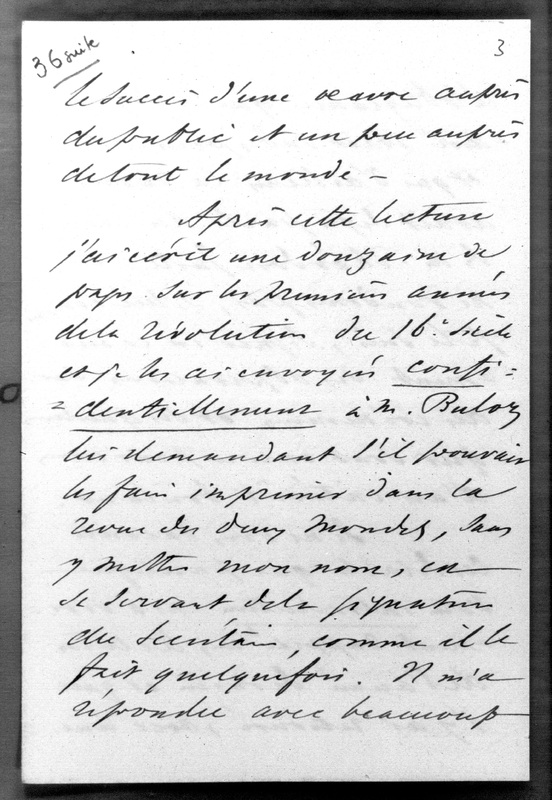 36 suite
3
le succès d'une oeuvre auprès
du public et un peu auprès
de tout le monde –
Après cette lecture
j'ai écrit une douzaine de
pages sur les premières années
de la révolution du 16e siècle
et je les ai envoyées confi=
=dentiellement à M. Buloz
lui demandant s'il pouvait
les faire imprimer dans la
revue des deux Mondes, sans
y mettre mon nom, en
se servant de la signature
du secrétaire, comme il le
fait quelquefois. Il m'a
répondu avec beaucoup